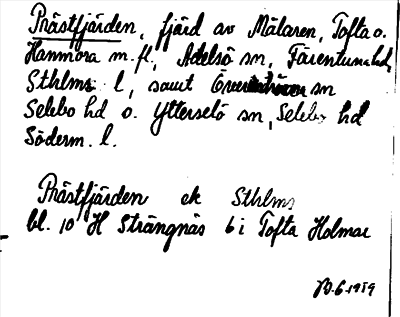 Prästfjärden, fjärd av Mälaren, Tofta o.
Hanmora m. fl, Adelsö sn, Färentuna hd,
Sthlms l, samt sn
Selebo hd o. Ytterselö sn, Selebo hd
Söderm. l.
Prästfjärden ek Sthlms
bl. 10 H Strängnäs 6 i Tofta Holmar
6.1959